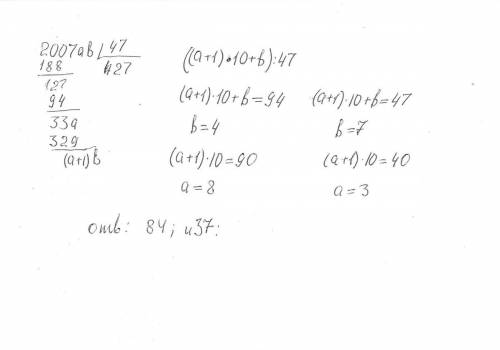 2007ab | 47
188
427
127
94
33a
329
(a+1)b
((a+1)·10+b):47
(a+1)·10+b=94
b=4
(a+1)·10=90
a=8
(a+1)·10+b=47
b=7
(a+1)·10=40
a=3
отв: 84; и 37: